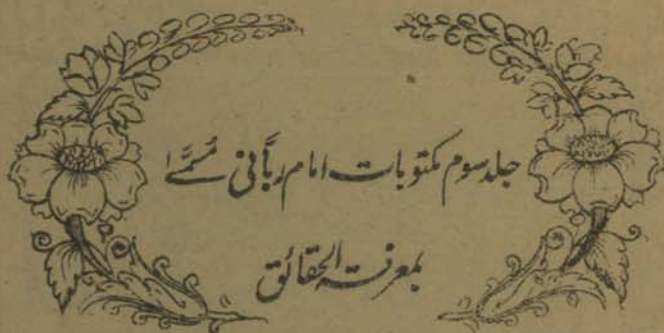 جلد سوم مکتوبات امام ربانی مُسَمَّے
بمعرفۃ الحقائق